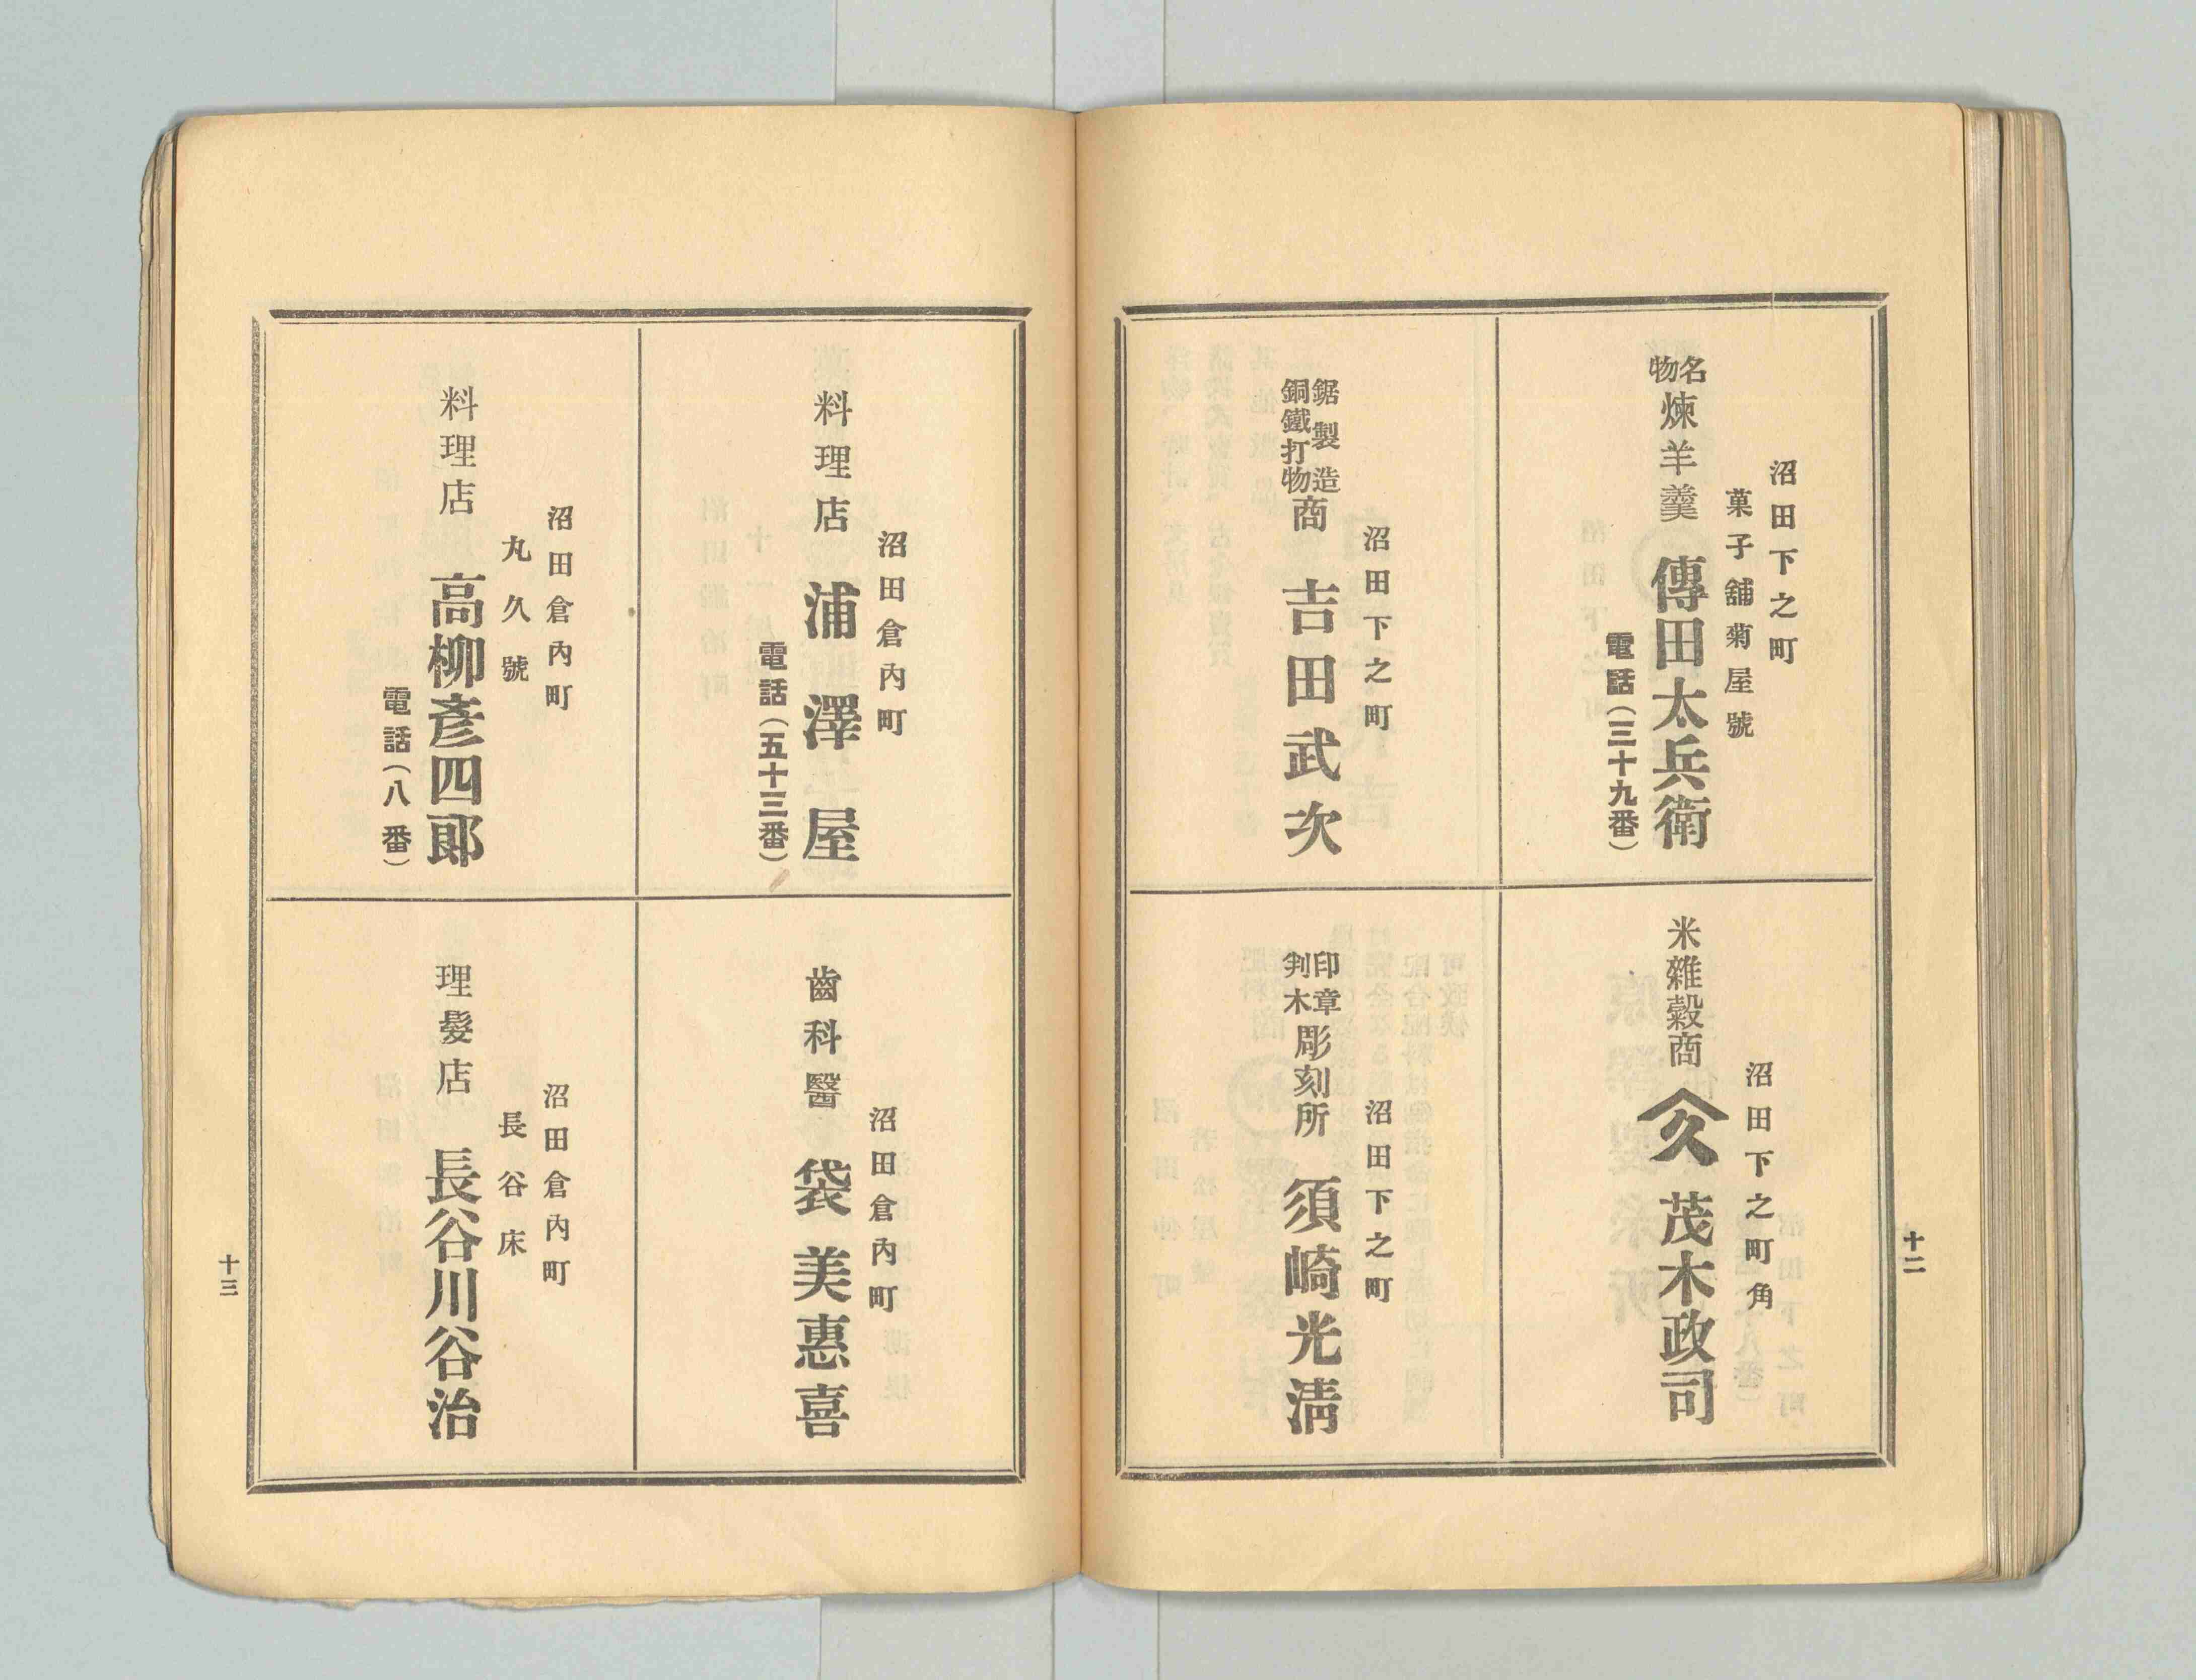 沼田下之町
菓子舖菊屋號
名物煉羊羹　傳田太兵衛
電話（三十九番）
沼田下之町
鋸製造銅鐵打物商　吉田武次
沼田下之町角
米雜穀商　久　茂木政司
沼田下之町
印章判木彫刻所　須崎光淸
十二
沼田倉內町
料理店　浦澤屋
電話（五十三番）
沼田倉內町
丸久號
料理店　高柳彥四郞
電話（八番）
沼田倉內町
齒科醫　袋美惠喜
沼田倉內町
長谷床
理髮店　長谷川谷治
十三